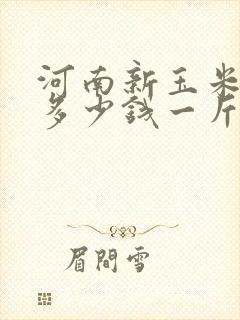 河南新玉米
多少钱一斤
眉間雪